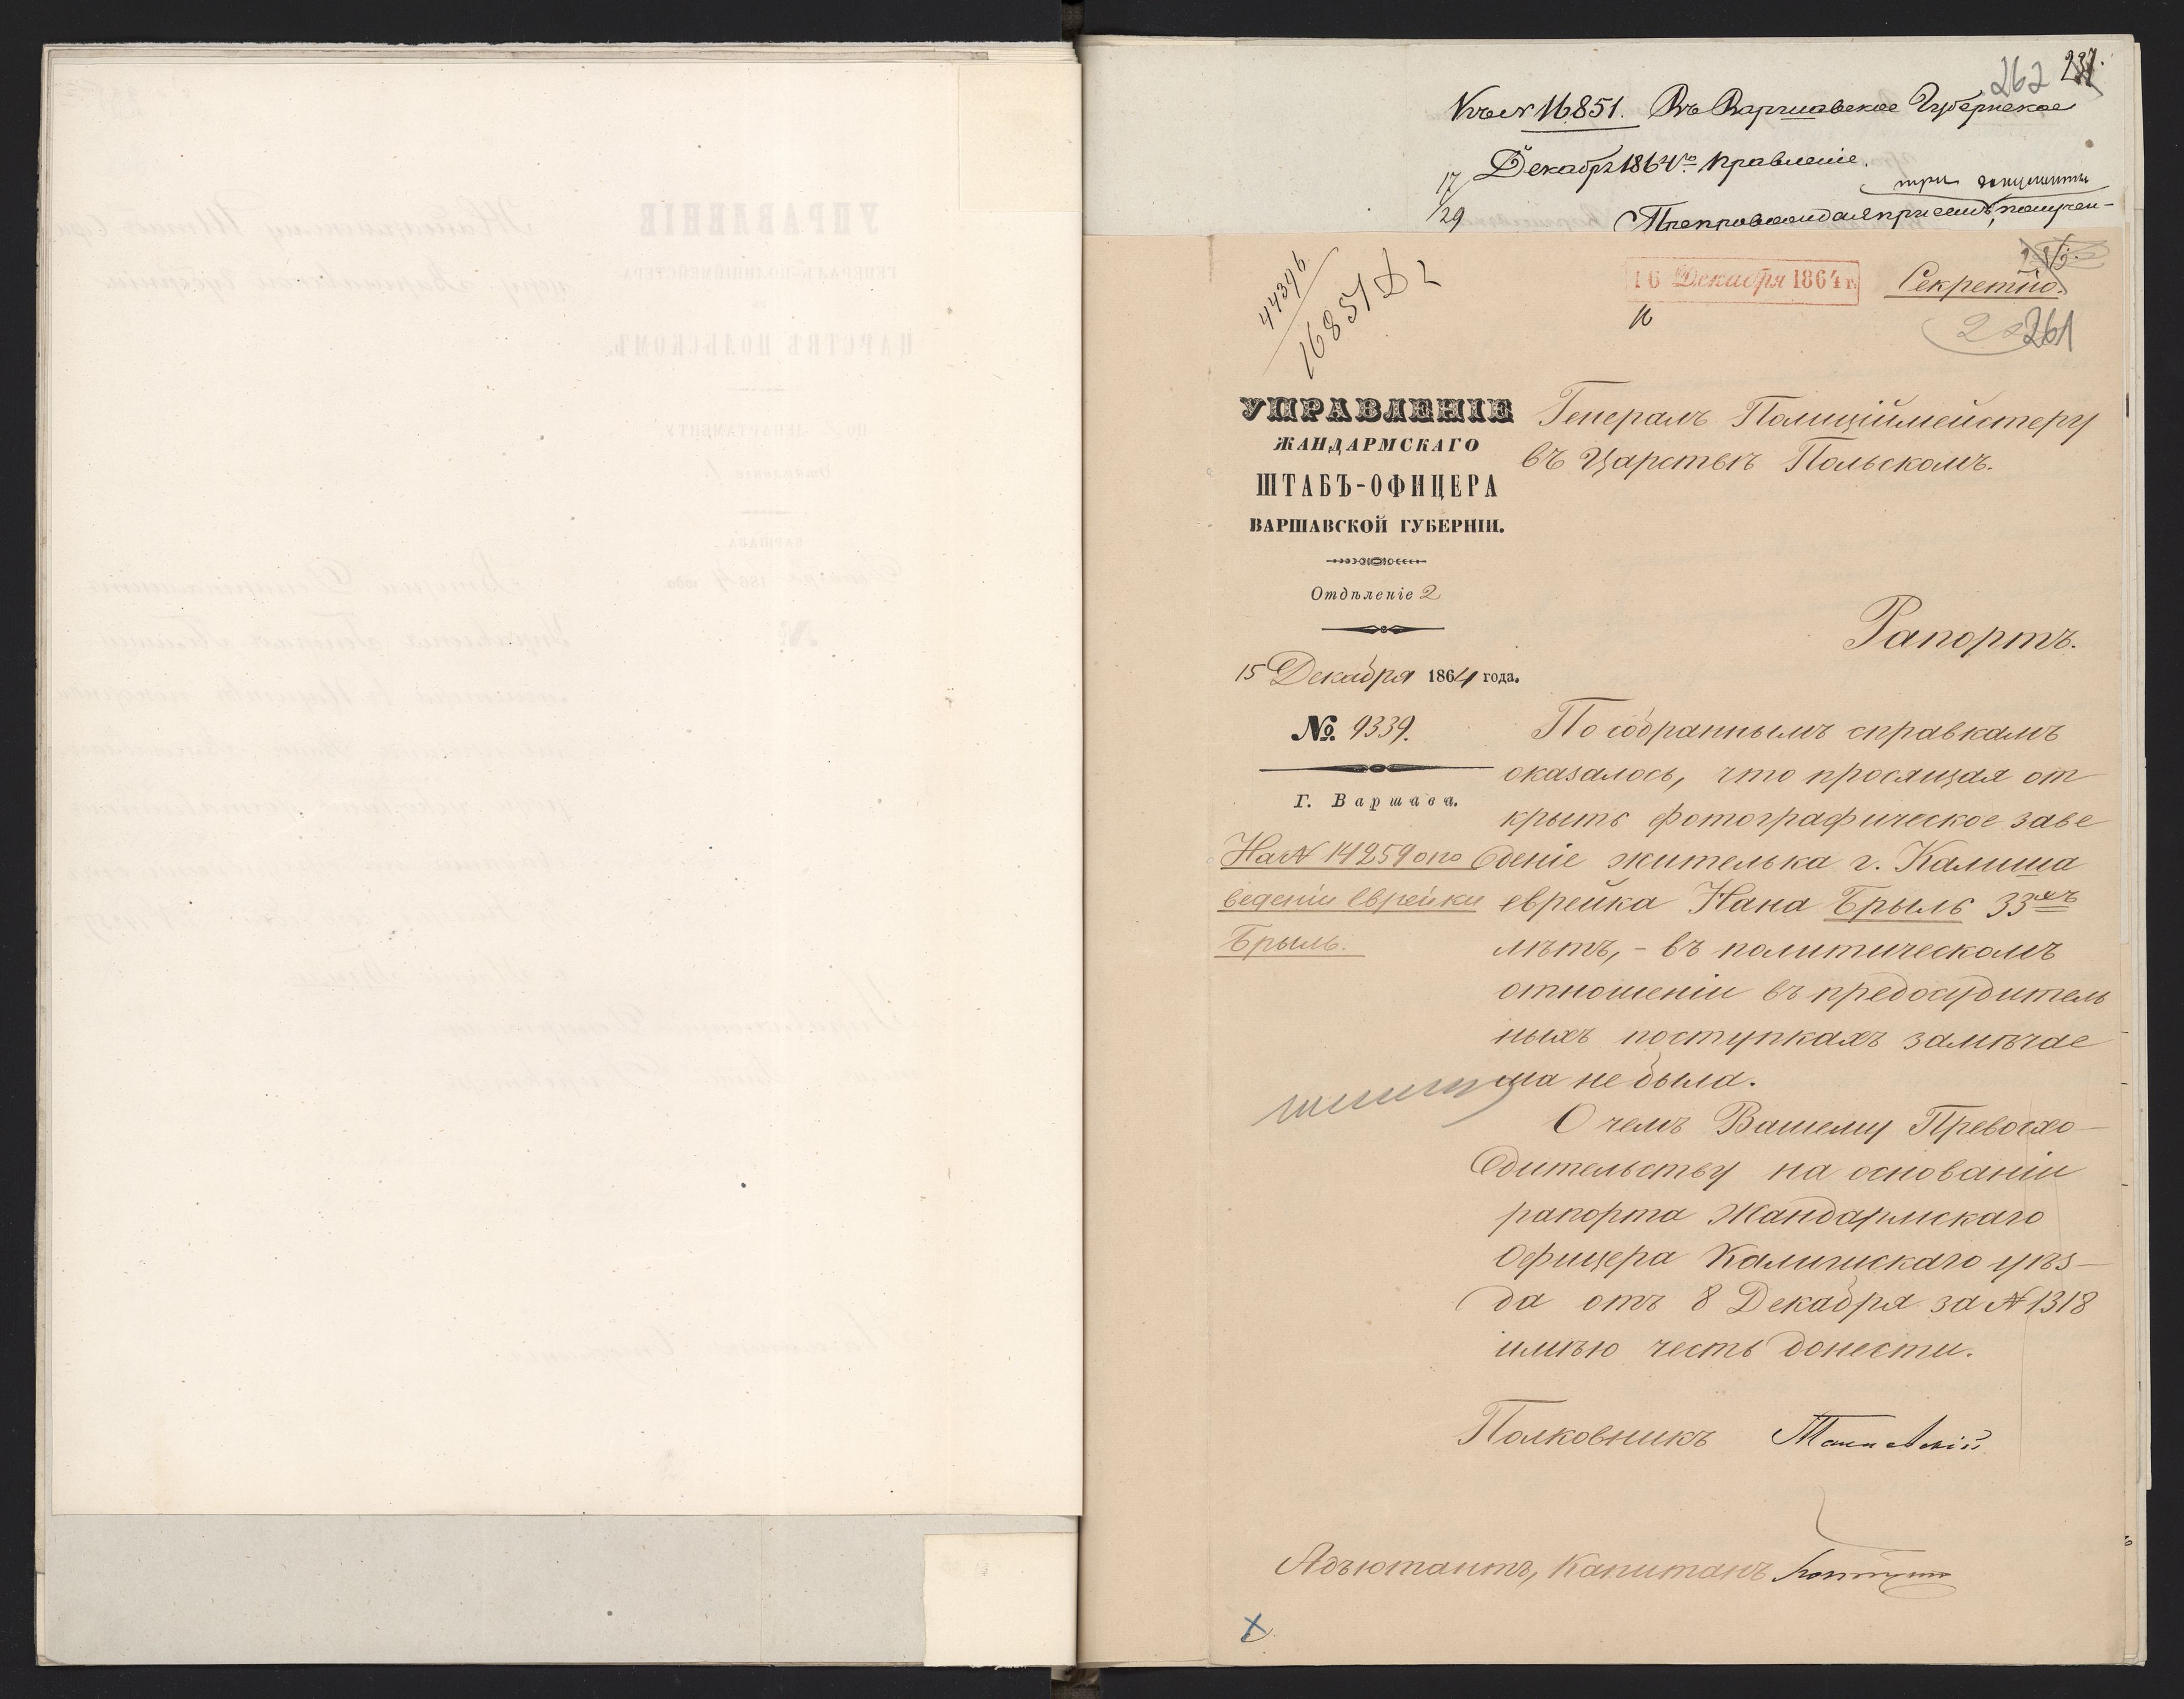 262 237.
Къ № 16851. Въ Варшавское Губернское
Декабря 1864 го Правленіе.
17/29
три документы
Препровождая при семъ, получен-
44396
16851 Д 2
16 Декабря 1864 г.
Секретно.
261
УПРАВЛЕНІЕ
ЖАНДАРМСКАГО
ШТАБЪ-ОФИЦЕРА
ВАРШАВСКОЙ ГУБЕРНІИ.
Отдѣленіе 2
15 Декабря 1864 года.
№ 9339.
Г. Варшава.
На № 14259 о по
веденіи Еврейки
Брыль.
Генералъ Полиціймейстеру
въ Царствѣ Польскомъ.
Рапортъ.
По собраннымъ справкамъ
оказалось, что просящая от
крыть фотографическое заве
деніе жителька г. Калиша
еврейка Хана Брыль 33хъ
лѣтъ, - въ политическомъ
отношеніи въ предосудитель
ныхъ поступкахъ замѣчае
ма не была.
О чемъ Вашему Превосхо-
дительству на основаніи
рапорта Жандармскаго
Офицера Калишскаго уѣз-
да отъ 8 Декабря за № 1318
имѣю честь донести.
Полковникъ
Адъютантъ, Капитанъ